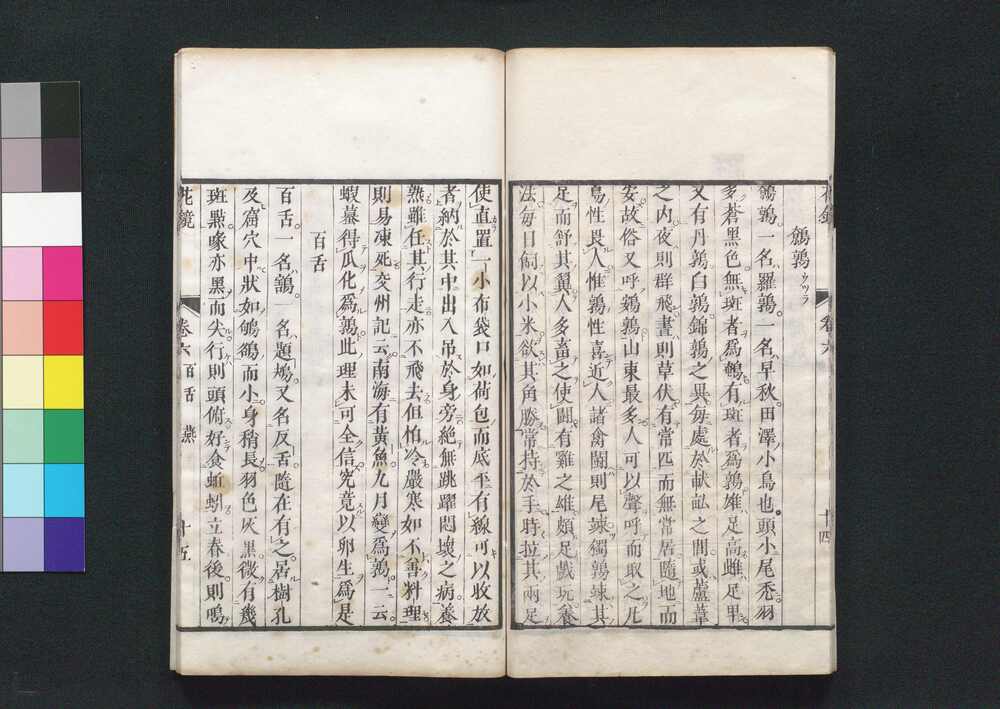 花鏡 卷六 十四
鵪鶉 ウヅラ
鵪鶉一名羅鶉一名早秋田澤小鳥也頭小尾禿羽
多蒼黑色無斑者爲鵪有斑者爲鶉雄足高雌足卑
又有丹鶉白鶉錦鶉之異每處於畎畆之間或蘆葦
之内夜則群飛晝則草伏有常匹而無常居隨地而
安故俗又呼鵪鶉山東最多人可以聲呼而取之凡
鳥性畏人惟鶉性喜近人諸禽鬭則尾竦獨鶉竦其
足而舒其翼人多畜之使鬭有雞之雄頗足戲玩養
法每日飼以小米欲其角勝常持於手時拉其兩足
使直置一小布袋口如荷包而底平有線可以收放
者納於其中出入吊於身旁絶無跳躍悶壞之病養
熟雖任其行走亦不飛去但怕冷嚴寒如不善料理
則易凍死交州記云南海有黃魚九月變爲鶉一云
蝦蟇得瓜化爲鶉此理未可全信究竟以卵生爲是
百舌
百舌一名鶷一名題鴂又名反舌隨在有之居樹孔
及窟穴中狀如鴝鵒而小身稍長羽色灰黑微有幾
斑點喙亦黑而尖行則頭俯好食蚯蚓立春後則鳴
花鏡 卷六 百舌 燕 十五